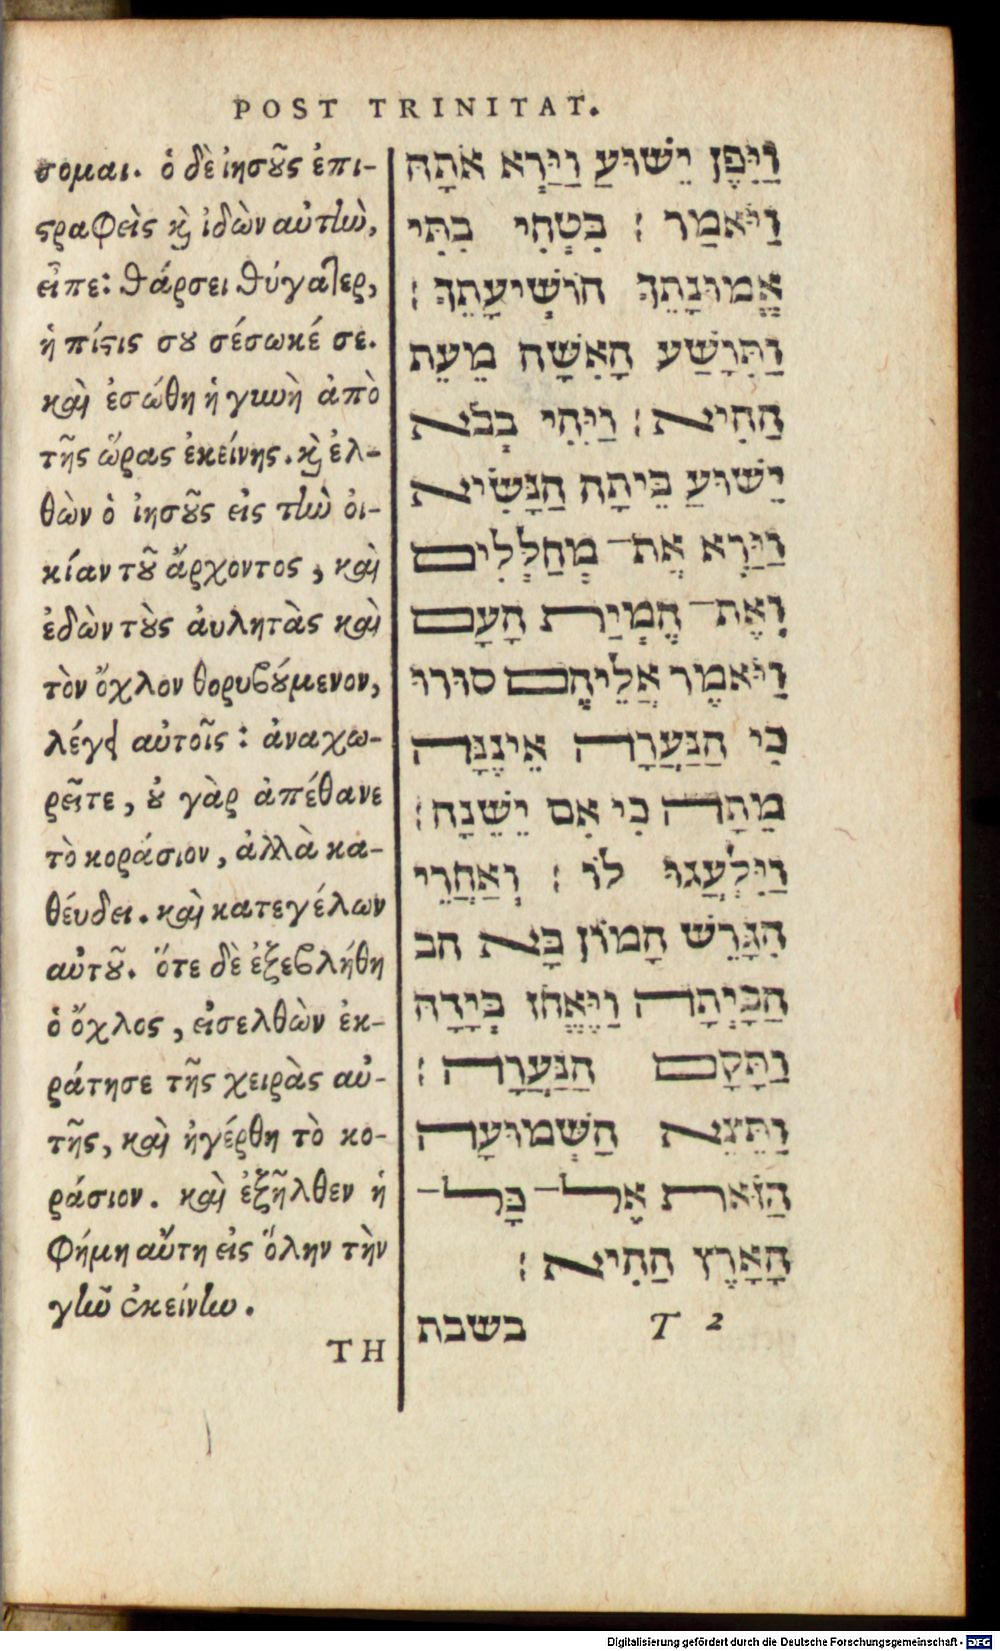 POST TRINITAT.
σομαι. ὁ δὲ ἰησοῦς ἐπι-
στραφεὶς καὶ ἰδὼν αὐτὴν,
εἶπε: θάρσει θύγατερ,
ἡ πίστις σου σέσωκέ σε.
καὶ ἐσώθη ἡ γυνὴ ἀπὸ
τῆς ὥρας ἐκείνης. καὶ ἐλ-
θὼν ὁ ἰησοῦς εἰς τὴν οἰ-
κίαν τοῦ ἄρχοντος, καὶ
ἐδὼν τοὺς αὐλητὰς καὶ
τὸν ὄχλον θορυβούμενον,
λέγει αὐτοῖς: ἀναχω-
ρεῖτε, οὐ γὰρ ἀπέθανε
τὸ κοράσιον, ἀλλὰ κα-
θέυδει. καὶ κατεγέλων
αὐτοῦ. ὅτε δὲ ἐξεβλήθη
ὁ ὄχλος, εἰσελθὼν ἐκ-
ράτησε τῆς χειρὰς αὐ-
τῆς, καὶ ἠγέρθη τὸ κο-
ράσιον. καὶ ἐξῆλθεν ἡ
φήμη αὕτη εἰς ὅλην τὴν
γῆν ἐκείνην.
ΤΗ
וַיִּפֶן יֵשׁוּעַ וַיַּרְא אֹתָהּ
וַיֹּאמַר : בִּטְחִי בִתִּי
אֱמוּנָתֵךְ הוֹשִׁיעָתֵךְ :
וַתִּוָּשַׁע הָאִשָּׁה מֵעֵת
הַהִיא : וַיְּהִי בְּבֹא
יֵשׁוּעַ בֵּיתָה הַנָּשִׂיא
וַיַּרְא אֶת־ מְחַלְּלִים
וְאֶת־ הֶמְיַת הָעָם
וַיֹּאמֶר אֲלֵיהֶם סוּרוּ
כִּי הַנַּעֲרָה אֵינֶנָּה
מֵתָה כִּי אִם יְשֵׁנָה :
וַיִּלְעֲגוּ לוֹ : וְאַחֲרֵי
הִגָּרֵשׁ הָמוֹן בָּא הב
הַבַּיְתָה וַיֶּאֱחֹז בְּיָדָהּ
וַתָּקָם הַנַּעֲרָה :
וַתֵּצֵא הַשְּׁמוּעָה
הַזֹּאת אֶל־ כָּל־
הָאָרֶץ הַהִיא :
T 2
בשבת
Digitalisierung gefördert durch die Deutsche Forschungsgemeinschaft - DFG